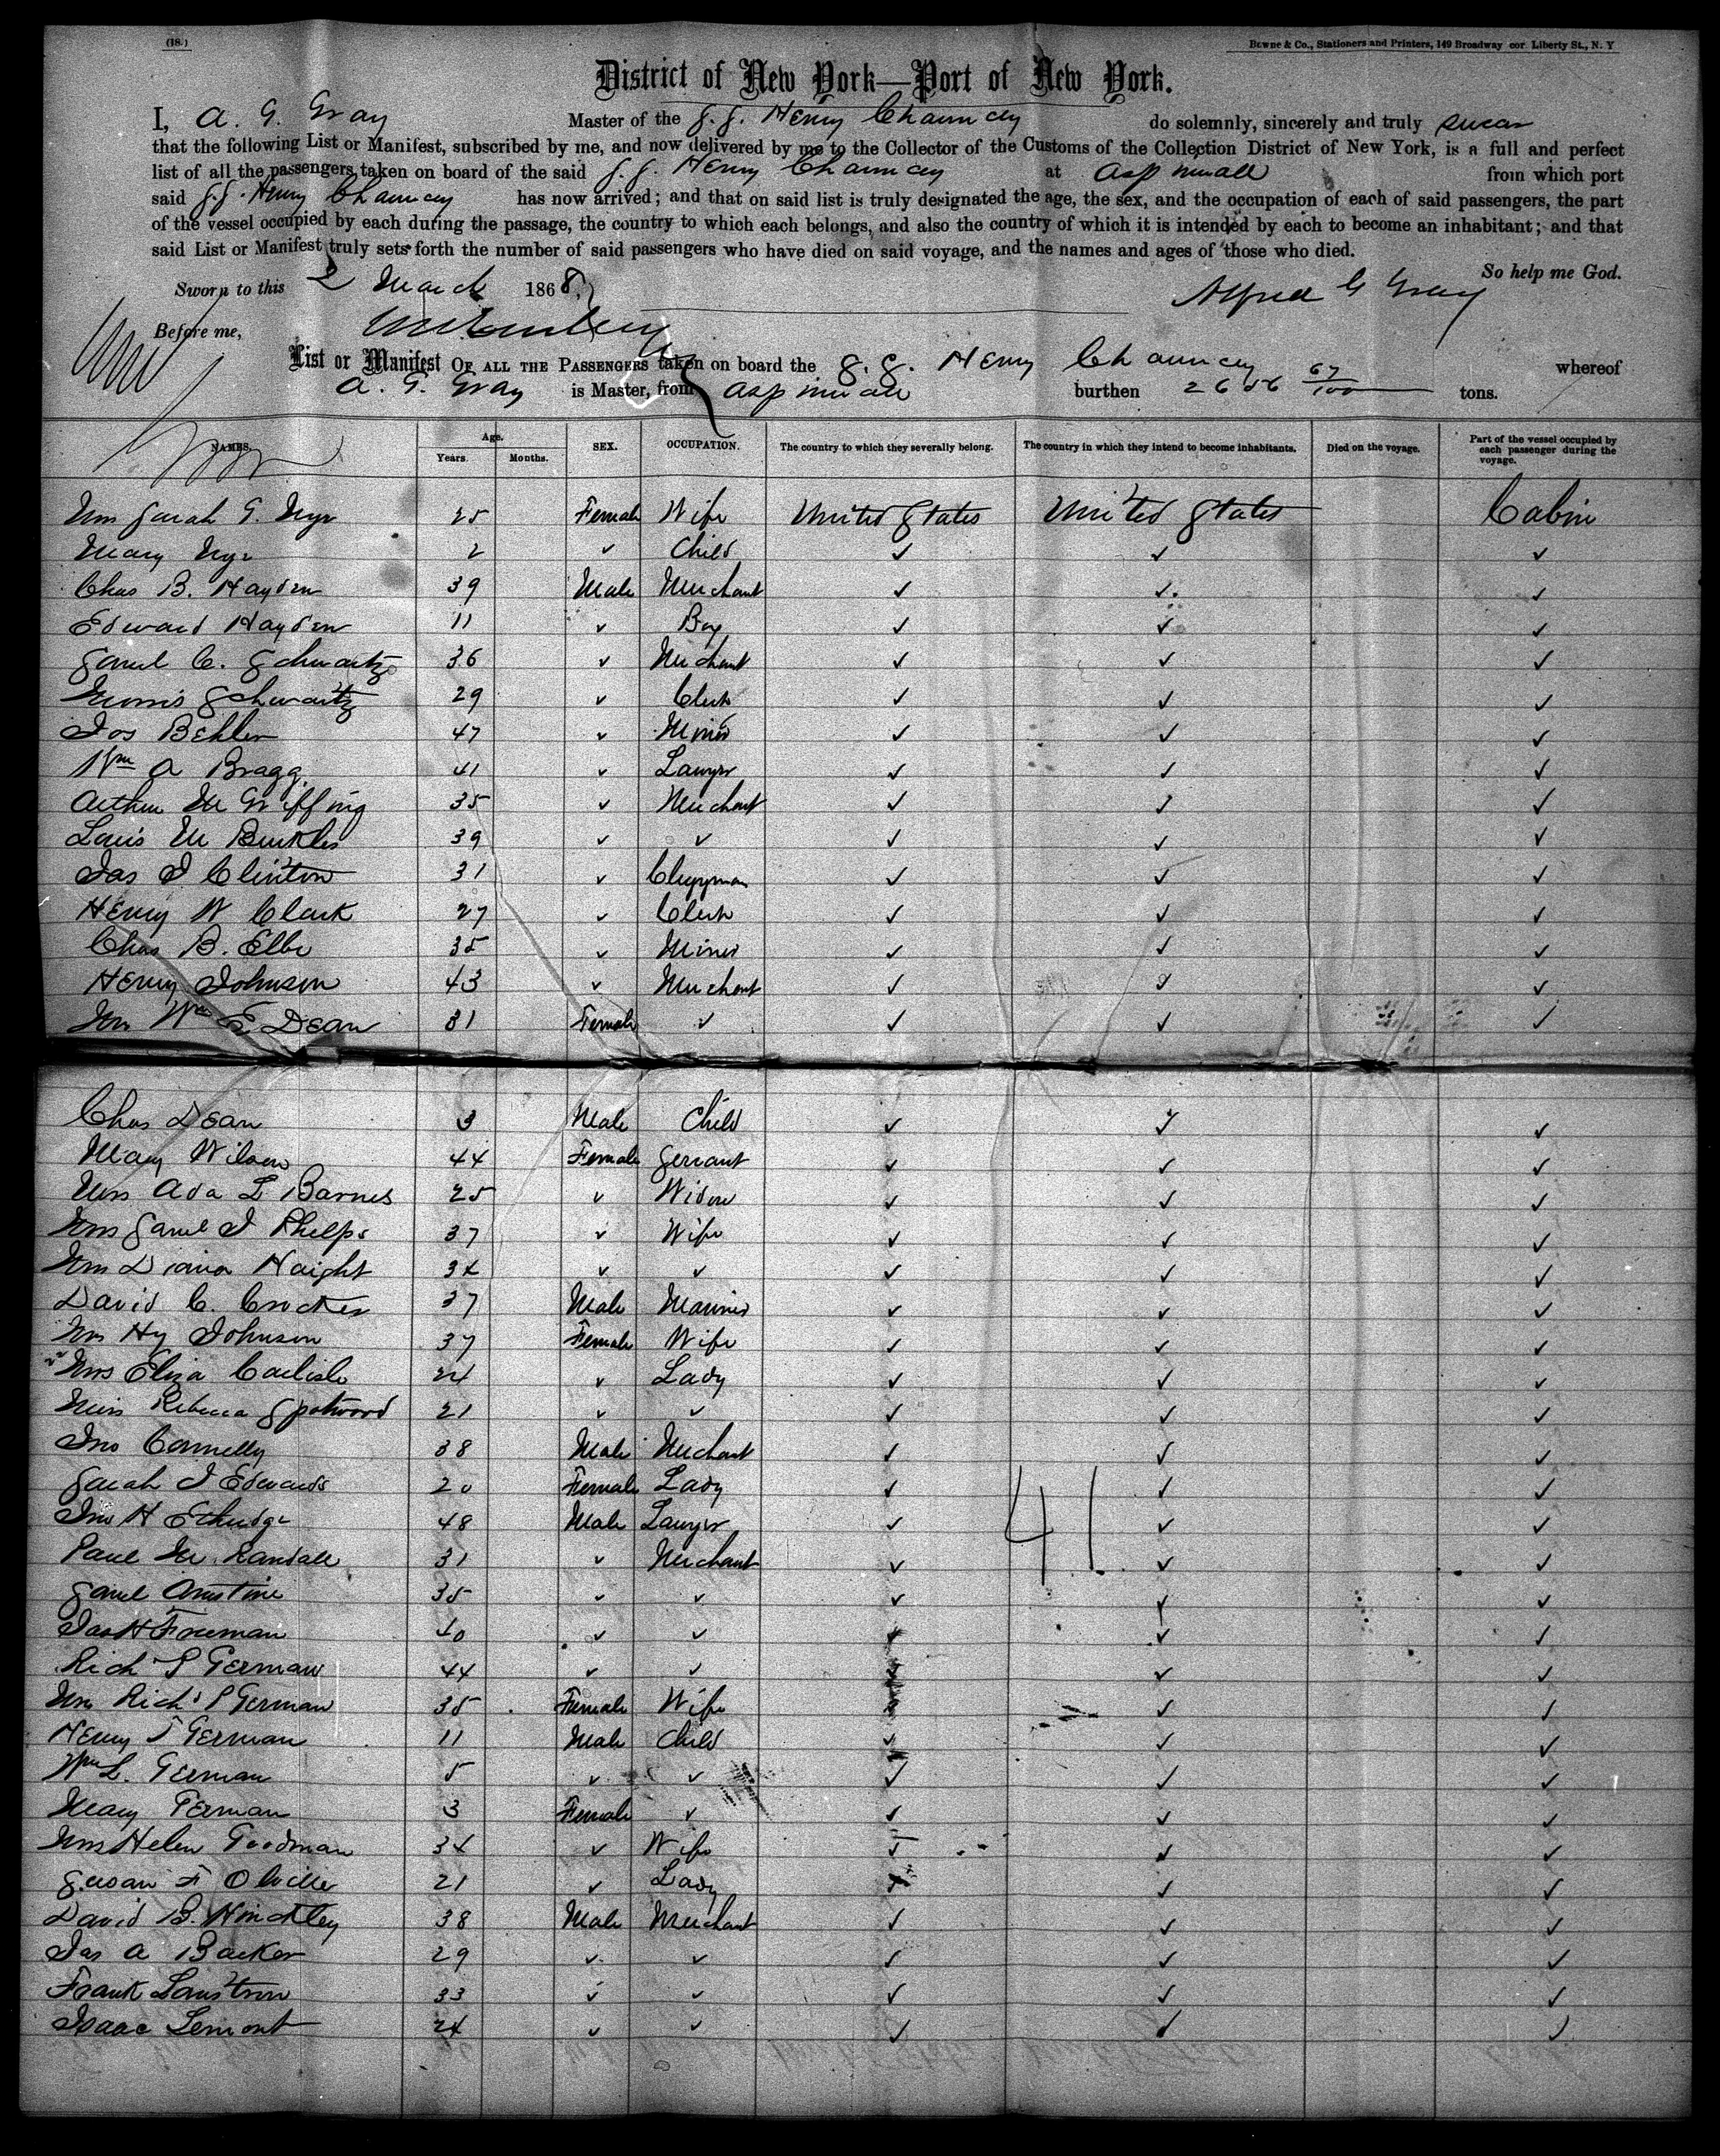 (18.)
Bowne & Co., Stationers and Printers, 149 Broadway cor. Liberty St., N. Y
District of New York—Port of New York.
I, A. G. Gray Master of the S.S. Henry Chauncey do solemnly, sincerely and truly swear
that the following List or Manifest, subscribed by me, and now delivered by me to the Collector of the Customs of the Collection District of New York, is a full and perfect
list of all the passengers taken on board of the said S.S. Henry Chauncey at Aspinwall from which port
said S.S. Henry Chauncey has now arrived; and that on said list is truly designated the age, the sex, and the occupation of each of said passengers, the part
of the vessel occupied by each during the passage, the country to which each belongs, and also the country of which it is intended by each to become an inhabitant; and that
said List or Manifest truly sets forth the number of said passengers who have died on said voyage, and the names and ages of those who died.
So help me God.
Sworn to this 2 March 1868. Alfred G Gray
Before me,
List or Manifest OF ALL THE PASSENGERS taken on board the S.S. Henry Chauncey whereof
A. G. Gray is Master, from Aspinwall burthen 2656 67/100 tons.
NAMES. Age. Years. Months. SEX. OCCUPATION. The country to which they severally belong. The country in which they intend to become inhabitants. Died on the voyage. Part of the vessel occupied by each passenger during the voyage.
Mrs Sarah G. Nye 25 Female Wife United States United States Cabin
Mary Nye 2 ✓ Child ✓ ✓ ✓
Chas B. Hayden 39 Male Merchant ✓ ✓ ✓
Edward Hayden 11 ✓ Boy ✓ ✓ ✓
Saml C. Schwartz 36 ✓ Merchant ✓ ✓ ✓
Morris Schwartz 29 ✓ Clerk ✓ ✓ ✓
Jos Behler 47 ✓ Miner ✓ ✓ ✓
Wm A Bragg 41 ✓ Lawyer ✓ ✓ ✓
Arthur M Griffing 35 ✓ Merchant ✓ ✓ ✓
Louis M Buckles 39 ✓ ✓ ✓ ✓ ✓
Jas J Clinton 31 ✓ Clergyman ✓ ✓ ✓
Henry W Clark 27 ✓ Clerk ✓ ✓ ✓
Chas B. Elbe 35 ✓ Miner ✓ ✓ ✓
Henry Johnson 43 ✓ Merchant ✓ ✓ ✓
Mrs Wm E Dean 31 Female ✓ ✓ ✓ ✓
Chas Dean 3 Male Child ✓ ✓ ✓
Mary Wilson 44 Female Servant ✓ ✓ ✓
Mrs Ada L Barnes 25 ✓ Widow ✓ ✓ ✓
Mrs Saml J Phelps 37 ✓ Wife ✓ ✓ ✓
Mrs Diana Haight 34 ✓ ✓ ✓ ✓ ✓
David C. Crocker 37 Male Mariner ✓ ✓ ✓
Mrs Hy Johnson 37 Female Wife ✓ ✓ ✓
Mrs Eliza Carlisle 24 ✓ Lady ✓ ✓ ✓
Miss Rebecca Spotwood 21 ✓ ✓ ✓ ✓ ✓
Jno Connelly 38 Male Merchant ✓ ✓ ✓
Sarah J Edwards 20 Female Lady ✓ ✓ ✓
Jno H Ethridge 48 Male Lawyer ✓ 41 ✓ ✓
Paul M. Randall 31 ✓ Merchant ✓ ✓ ✓
Saml Anstine 35 ✓ ✓ ✓ ✓ ✓
Jas H Freeman 40 ✓ ✓ ✓ ✓ ✓
Rich P German 44 ✓ ✓ ✓ ✓ ✓
Mrs Richd P German 35 Female Wife ✓ ✓
Henry T German 11 Male Child ✓ ✓ ✓
Wm L. German 5 ✓ ✓ ✓ ✓ ✓
Mary German 3 Female ✓ ✓ ✓ ✓
Mrs Helen Goodman 34 ✓ Wife ✓ ✓ ✓
Susan F Oliville 21 ✓ Lady ✓ ✓ ✓
David B. Hinckley 38 Male Merchant ✓ ✓ ✓
Jas A Backer 29 ✓ ✓ ✓ ✓ ✓
Frank Lanstrom 33 ✓ ✓ ✓ ✓ ✓
Isaac Lemont 24 ✓ ✓ ✓ ✓ ✓